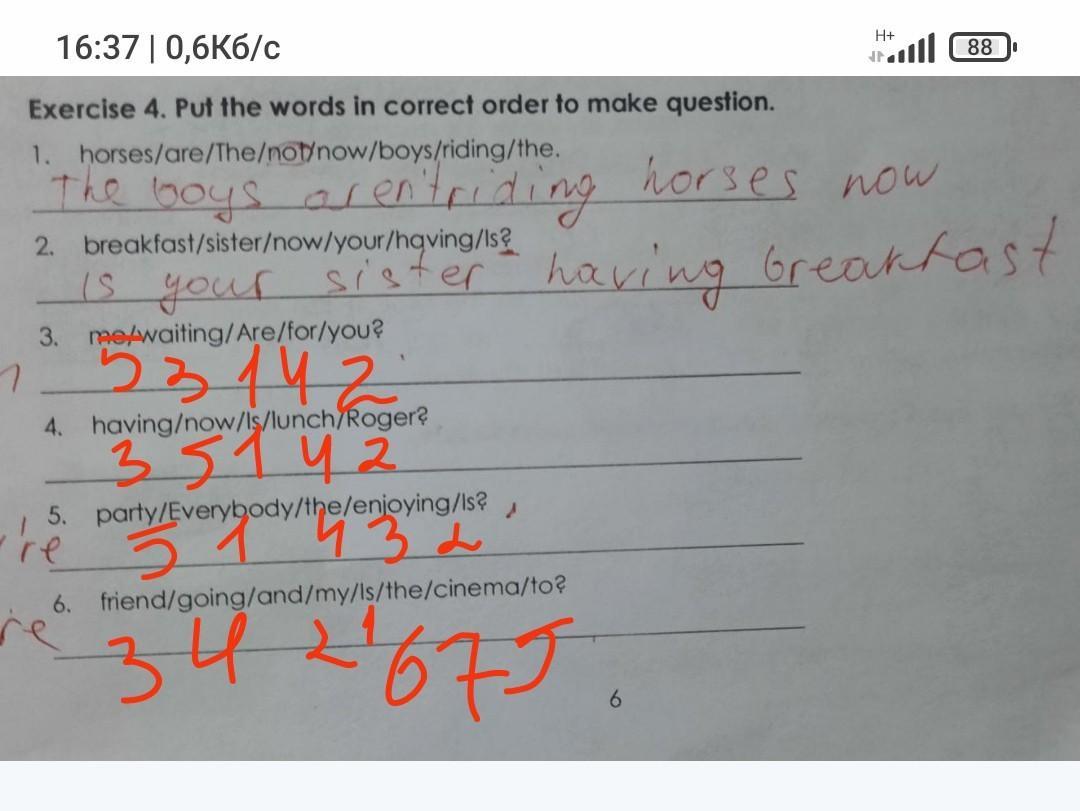 16:37 | 0,6Кб/с H+ 88
Exercise 4. Put the words in correct order to make question.
1. horses/are/The/not/now/boys/riding/the.
The boys aren't riding horses now
2. breakfast/sister/now/your/having/Is?
Is your sister having breakfast
3. me/waiting/Are/for/you?
5 3 1 4 2
4. having/now/Is/lunch/Roger?
3 5 1 4 2
5. party/Everybody/the/enjoying/Is?
're 5 1 4 3 2
6. friend/going/and/my/Is/the/cinema/to?
re 3 4 2 1 6 7 5
6